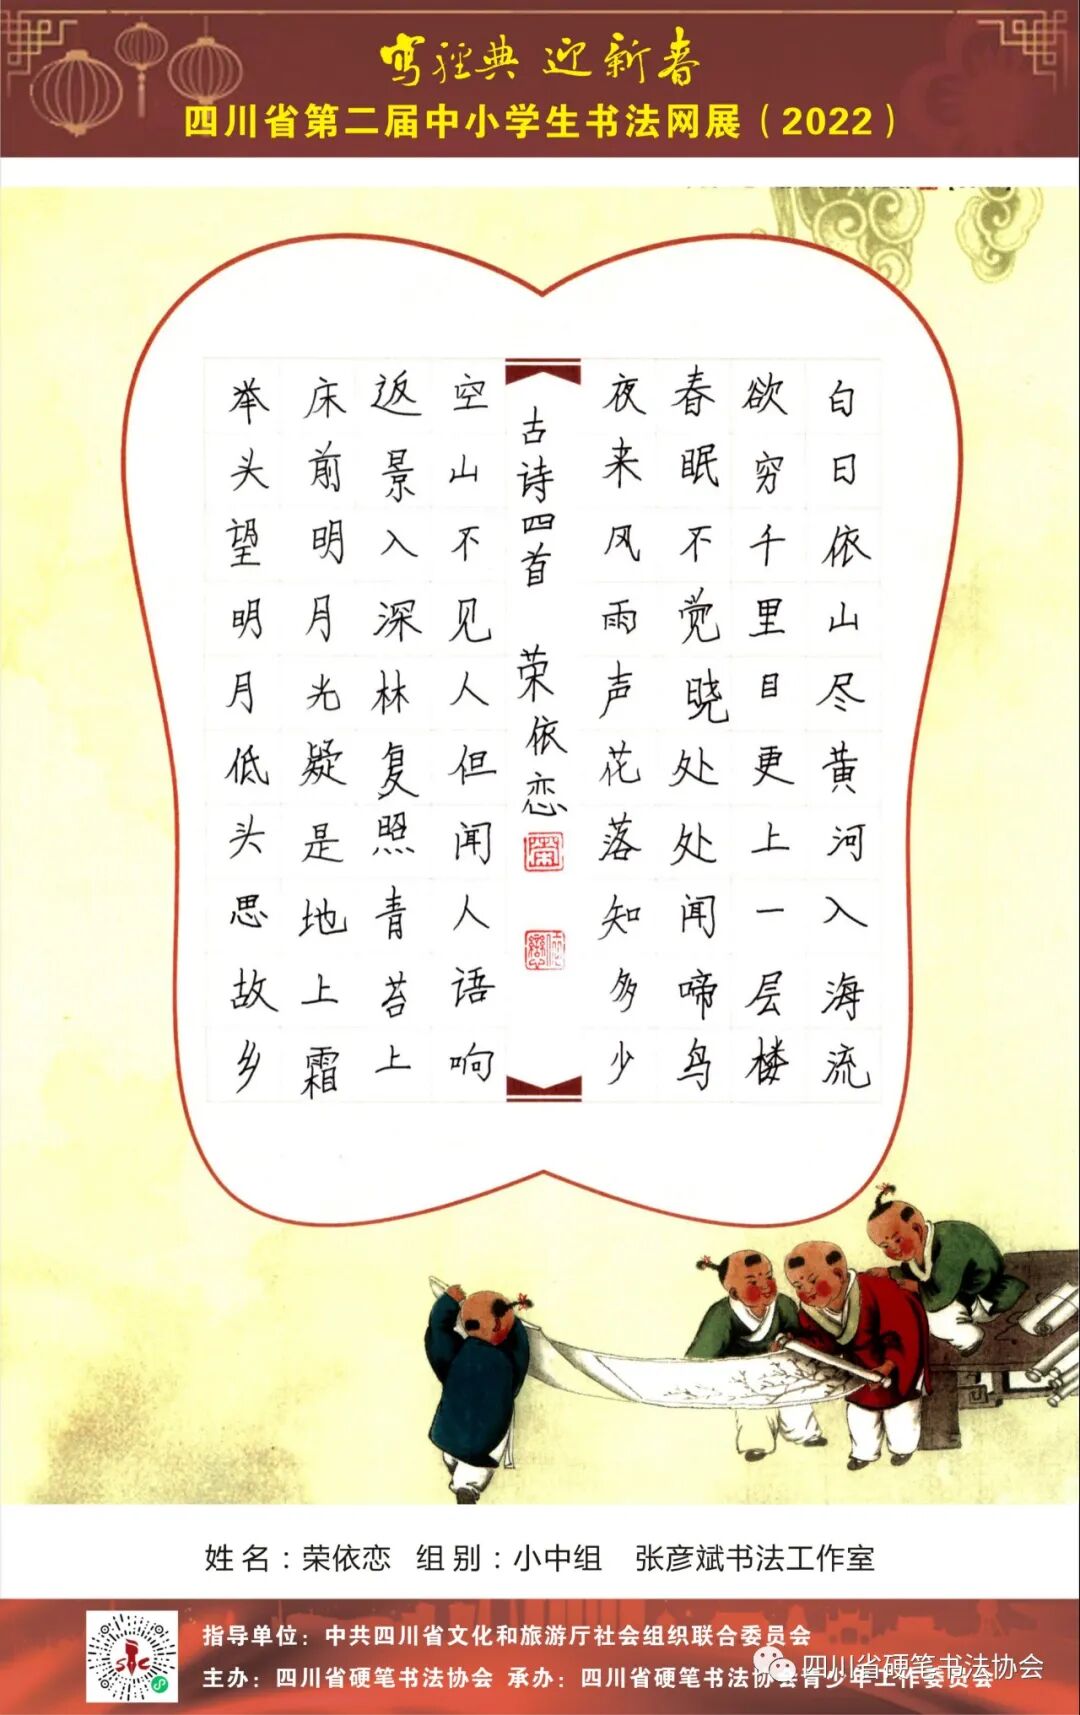 写经典 迎新春
四川省第二届中小学生书法网展（2022）
白日依山尽黄河入海流
欲穷千里目更上一层楼
春眠不觉晓处处闻啼鸟
夜来风雨声花落知多少
古诗四首 荣依恋
空山不见人但闻人语响
返景入深林复照青苔上
床前明月光疑是地上霜
举头望明月低头思故乡
姓名：荣依恋 组别：小中组 张彦斌书法工作室
指导单位：中共四川省文化和旅游厅社会组织联合委员会
主办：四川省硬笔书法协会 承办：四川省硬笔书法协会青少年工作委员会
四川省硬笔书法协会